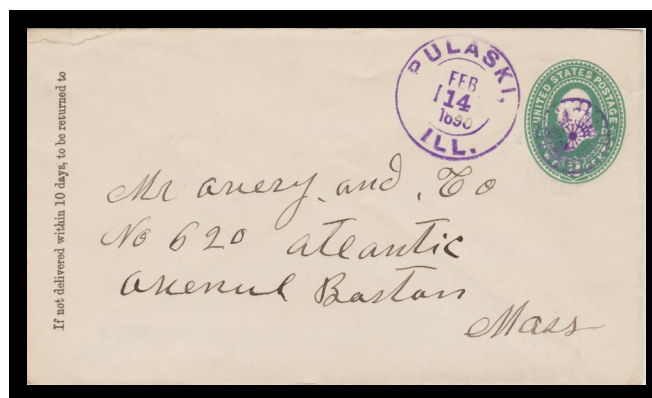 If not delivered within 10 days, to be returned to
PULASKI,
FEB
14
1890
ILL.
UNITED STATES POSTAGE
Mr avery and Co
No 620 atlantic
avenue Boston
Mass